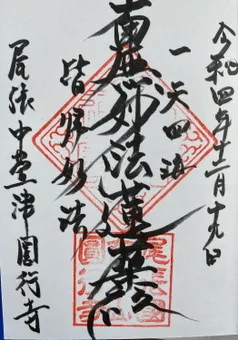 令和四年十二月十九日
一天四海
南無妙法蓮華経
皆帰妙法
尾張中島津圓行寺